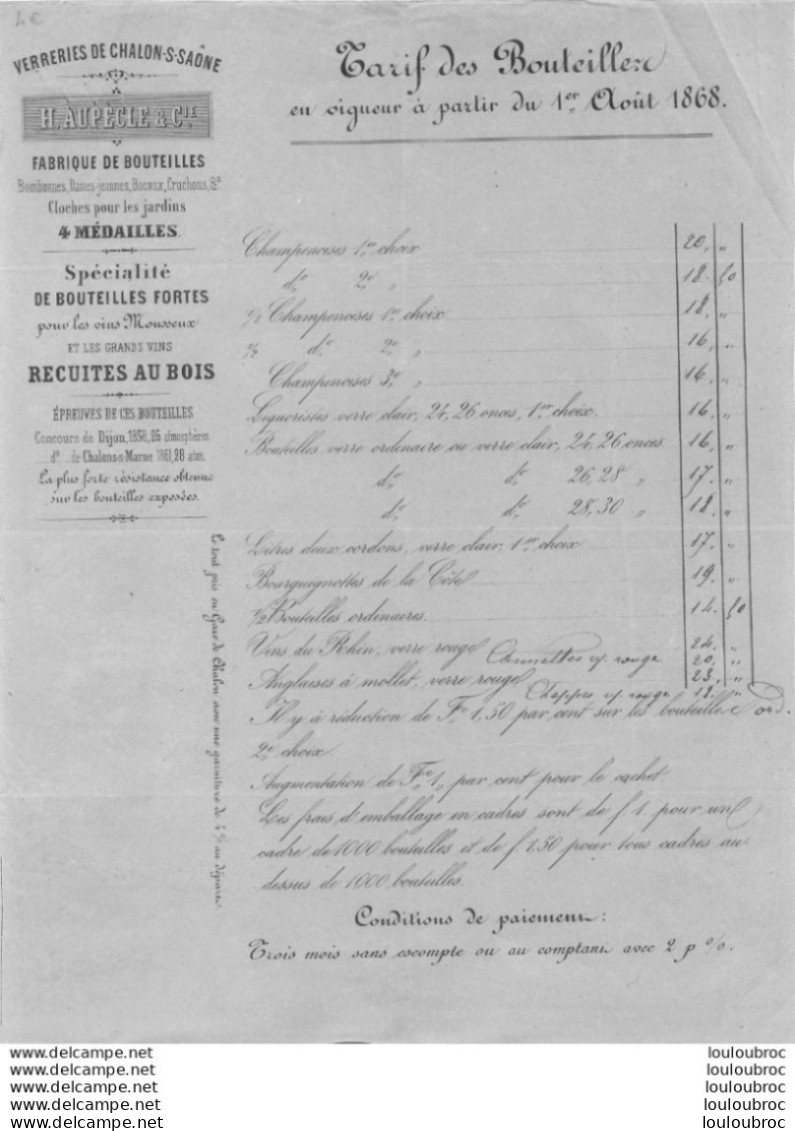 4€
VERRERIES DE CHALON-S-SAÔNE
H. AUPÈCLE & CIE
FABRIQUE DE BOUTEILLES
Bombonnes, Dames-jeannes, Bocaux, Cruchons, &a
Cloches pour les jardins
4 MÉDAILLES
Spécialité
DE BOUTEILLES FORTES
pour les vins Mousseux
ET LES GRANDS VINS
RECUITES AU BOIS
ÉPREUVES DE CES BOUTEILLES
Concours de Dijon, 1858, 25 atmosphères
do de Chalons-s-Marne 1861, 28 atm.
La plus forte résistance obtenue
sur les bouteilles exposées.
Le tout pris en Gare de Chalon avec une garniture de 4 % au départ.
Tarif des Bouteilles
en vigueur à partir du 1er Août 1868.
Champenoises 1er choix 20, "
do 2e " 18. 50
1/2 Champenoises 1er choix 18, "
1/2 do 2e " 16, "
Champenoises 3e " 16, "
Liquoristes verre clair, 24, 26 onces, 1er choix. 16, "
Bouteilles verre ordinaire ou verre clair, 24, 26 onces 16, "
do do 26, 28 " 17. "
do do 28, 30 " 18. "
Litres deux cordons, verre clair, 1er choix 17. "
Bourguignottes de la Côte 19. "
1/2 Bouteilles ordinaires. 14. 50
Vins du Rhin, verre rouge 24. "
Cannettes v. rouge 20, "
Anglaises à mollet, verre rouge 23, "
Choppes v. rouge 18. "
Il y à réduction de Fr 1,50 par cent sur les bouteilles ord.
2e choix.
Augmentation de Fr 1, par cent pour le cachet
Les frais d'emballage en cadres sont de f. 1. pour un
cadre de 1000 bouteilles et de f. 1.50 pour tous cadres au
dessus de 1000 bouteilles.
Conditions de paiement:
Trois mois sans escompte ou au comptant avec 2 p %.
www.delcampe.net
www.delcampe.net
www.delcampe.net
www.delcampe.net
www.delcampe.net
louloubroc
louloubroc
louloubroc
louloubroc
louloubroc